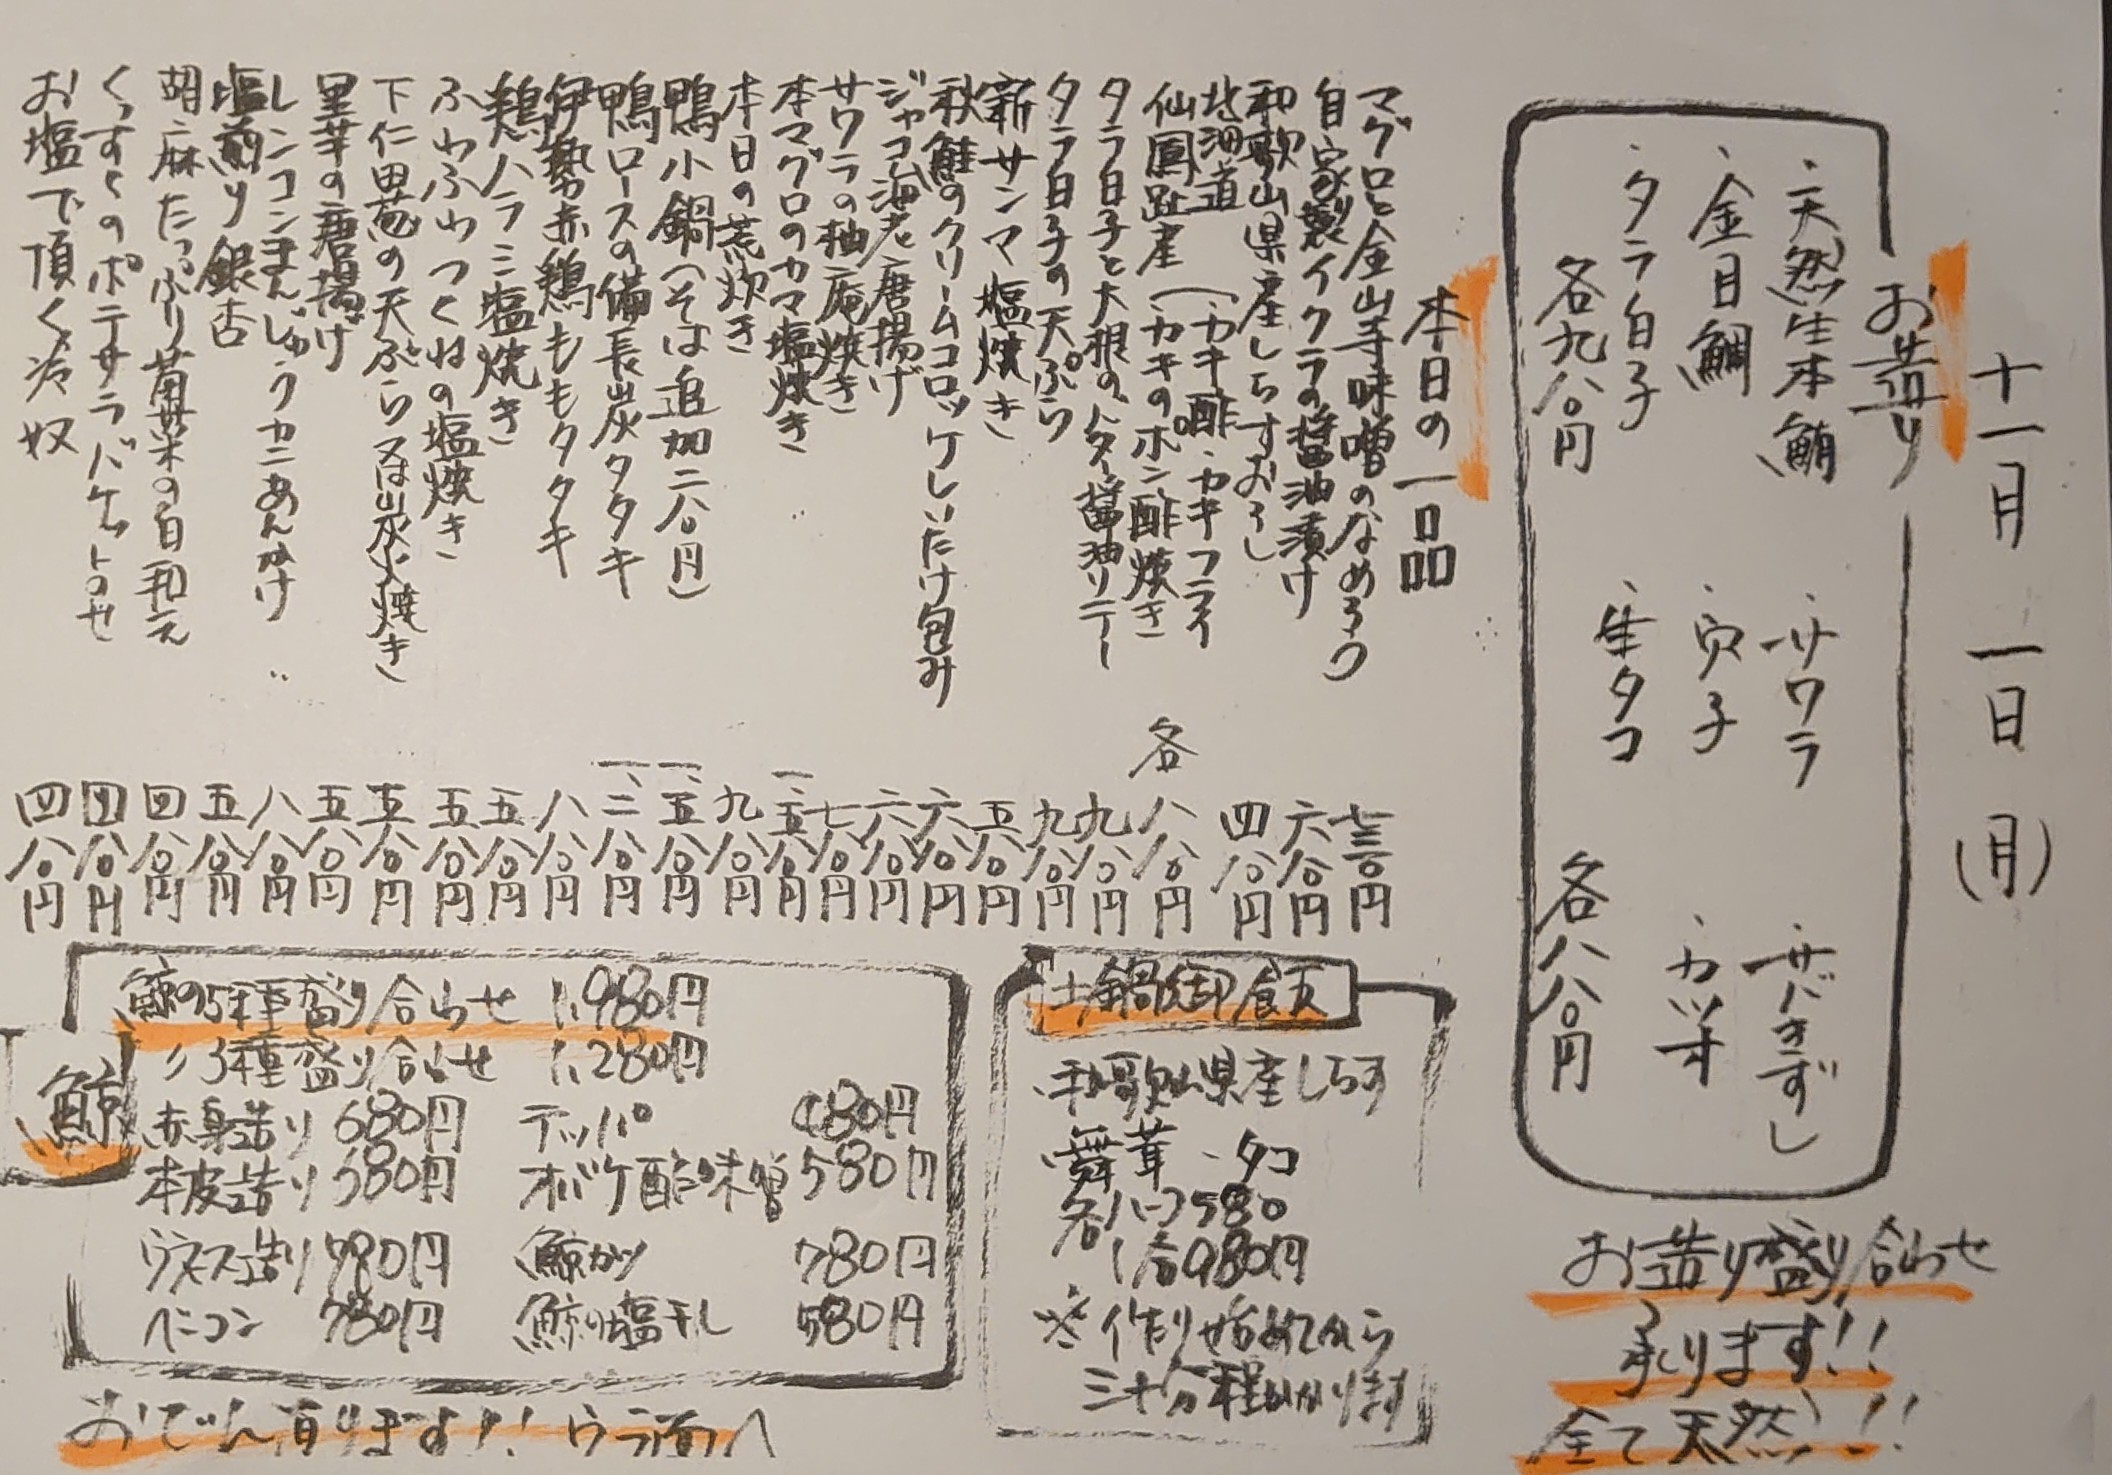 十一月 一日 (月)
お造り
・天然生本鮪 ・サワラ ・サバきずし
・金目鯛 ・穴子 ・カツオ
・タラ白子 ・生タコ
各九八〇円 各八八〇円
お造り盛り合わせ
承ります!!
全て天然!!
本日の一品
マグロと金山寺味噌のなめろう 七三〇円
自家製イクラの醤油漬け 六八〇円
和歌山県産しらすおろし 四八〇円
北海道
仙鳳趾産 (カキ酢・カキフライ
(カキのポン酢焼き 各 八八〇円
タラ白子と大根のバター醤油ソテー 九八〇円
タラ白子の天ぷら 九八〇円
新サンマ塩焼き 五八〇円
秋鮭のクリームコロッケしいたけ包み 六八〇円
ジャコ海老唐揚げ 六八〇円
サワラの柚庵焼き 七八〇円
本マグロのカマ塩焼き 一、五八〇円
本日の荒炊き 九八〇円
鴨小鍋(そば追加二八〇円) 一、五八〇円
鴨ロースの備長炭タタキ 一、二八〇円
伊勢赤鶏ももタタキ 八八〇円
鶏ハラミ塩焼き 五八〇円
ふわふわつくねの塩焼き 五八〇円
下仁田葱の天ぷら又は炭火焼き 五八〇円
里芋の唐揚げ 五八〇円
レンコンまんじゅうカニあんかけ 八八〇円
塩煎り銀杏 五八〇円
胡麻たっぷり菊菜の白和え 四八〇円
くっすくのポテサラバケットのせ 四八〇円
お塩で頂く冷奴 四八〇円
土鍋御飯
・和歌山県産しらす
・舞茸 ・タコ
各ハーフ580
1合980円
※作り始めてから
三十分程かかります
鯨
鯨の5種盛り合わせ 1,980円
〃3種盛り合わせ 1,280円
赤身造り 680円 テッパ 480円
本皮造り 580円 オバケ酢味噌 580円
ウネス造り 780円 鯨カツ 780円
ベーコン 780円 鯨の塩干し 580円
おでん有ります!! ウラ面へ